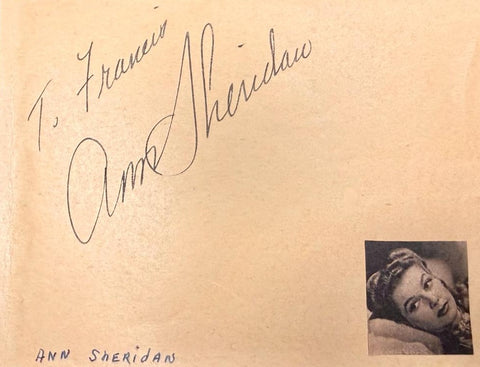 To Francis
Ann Sheridan
ANN SHERIDAN